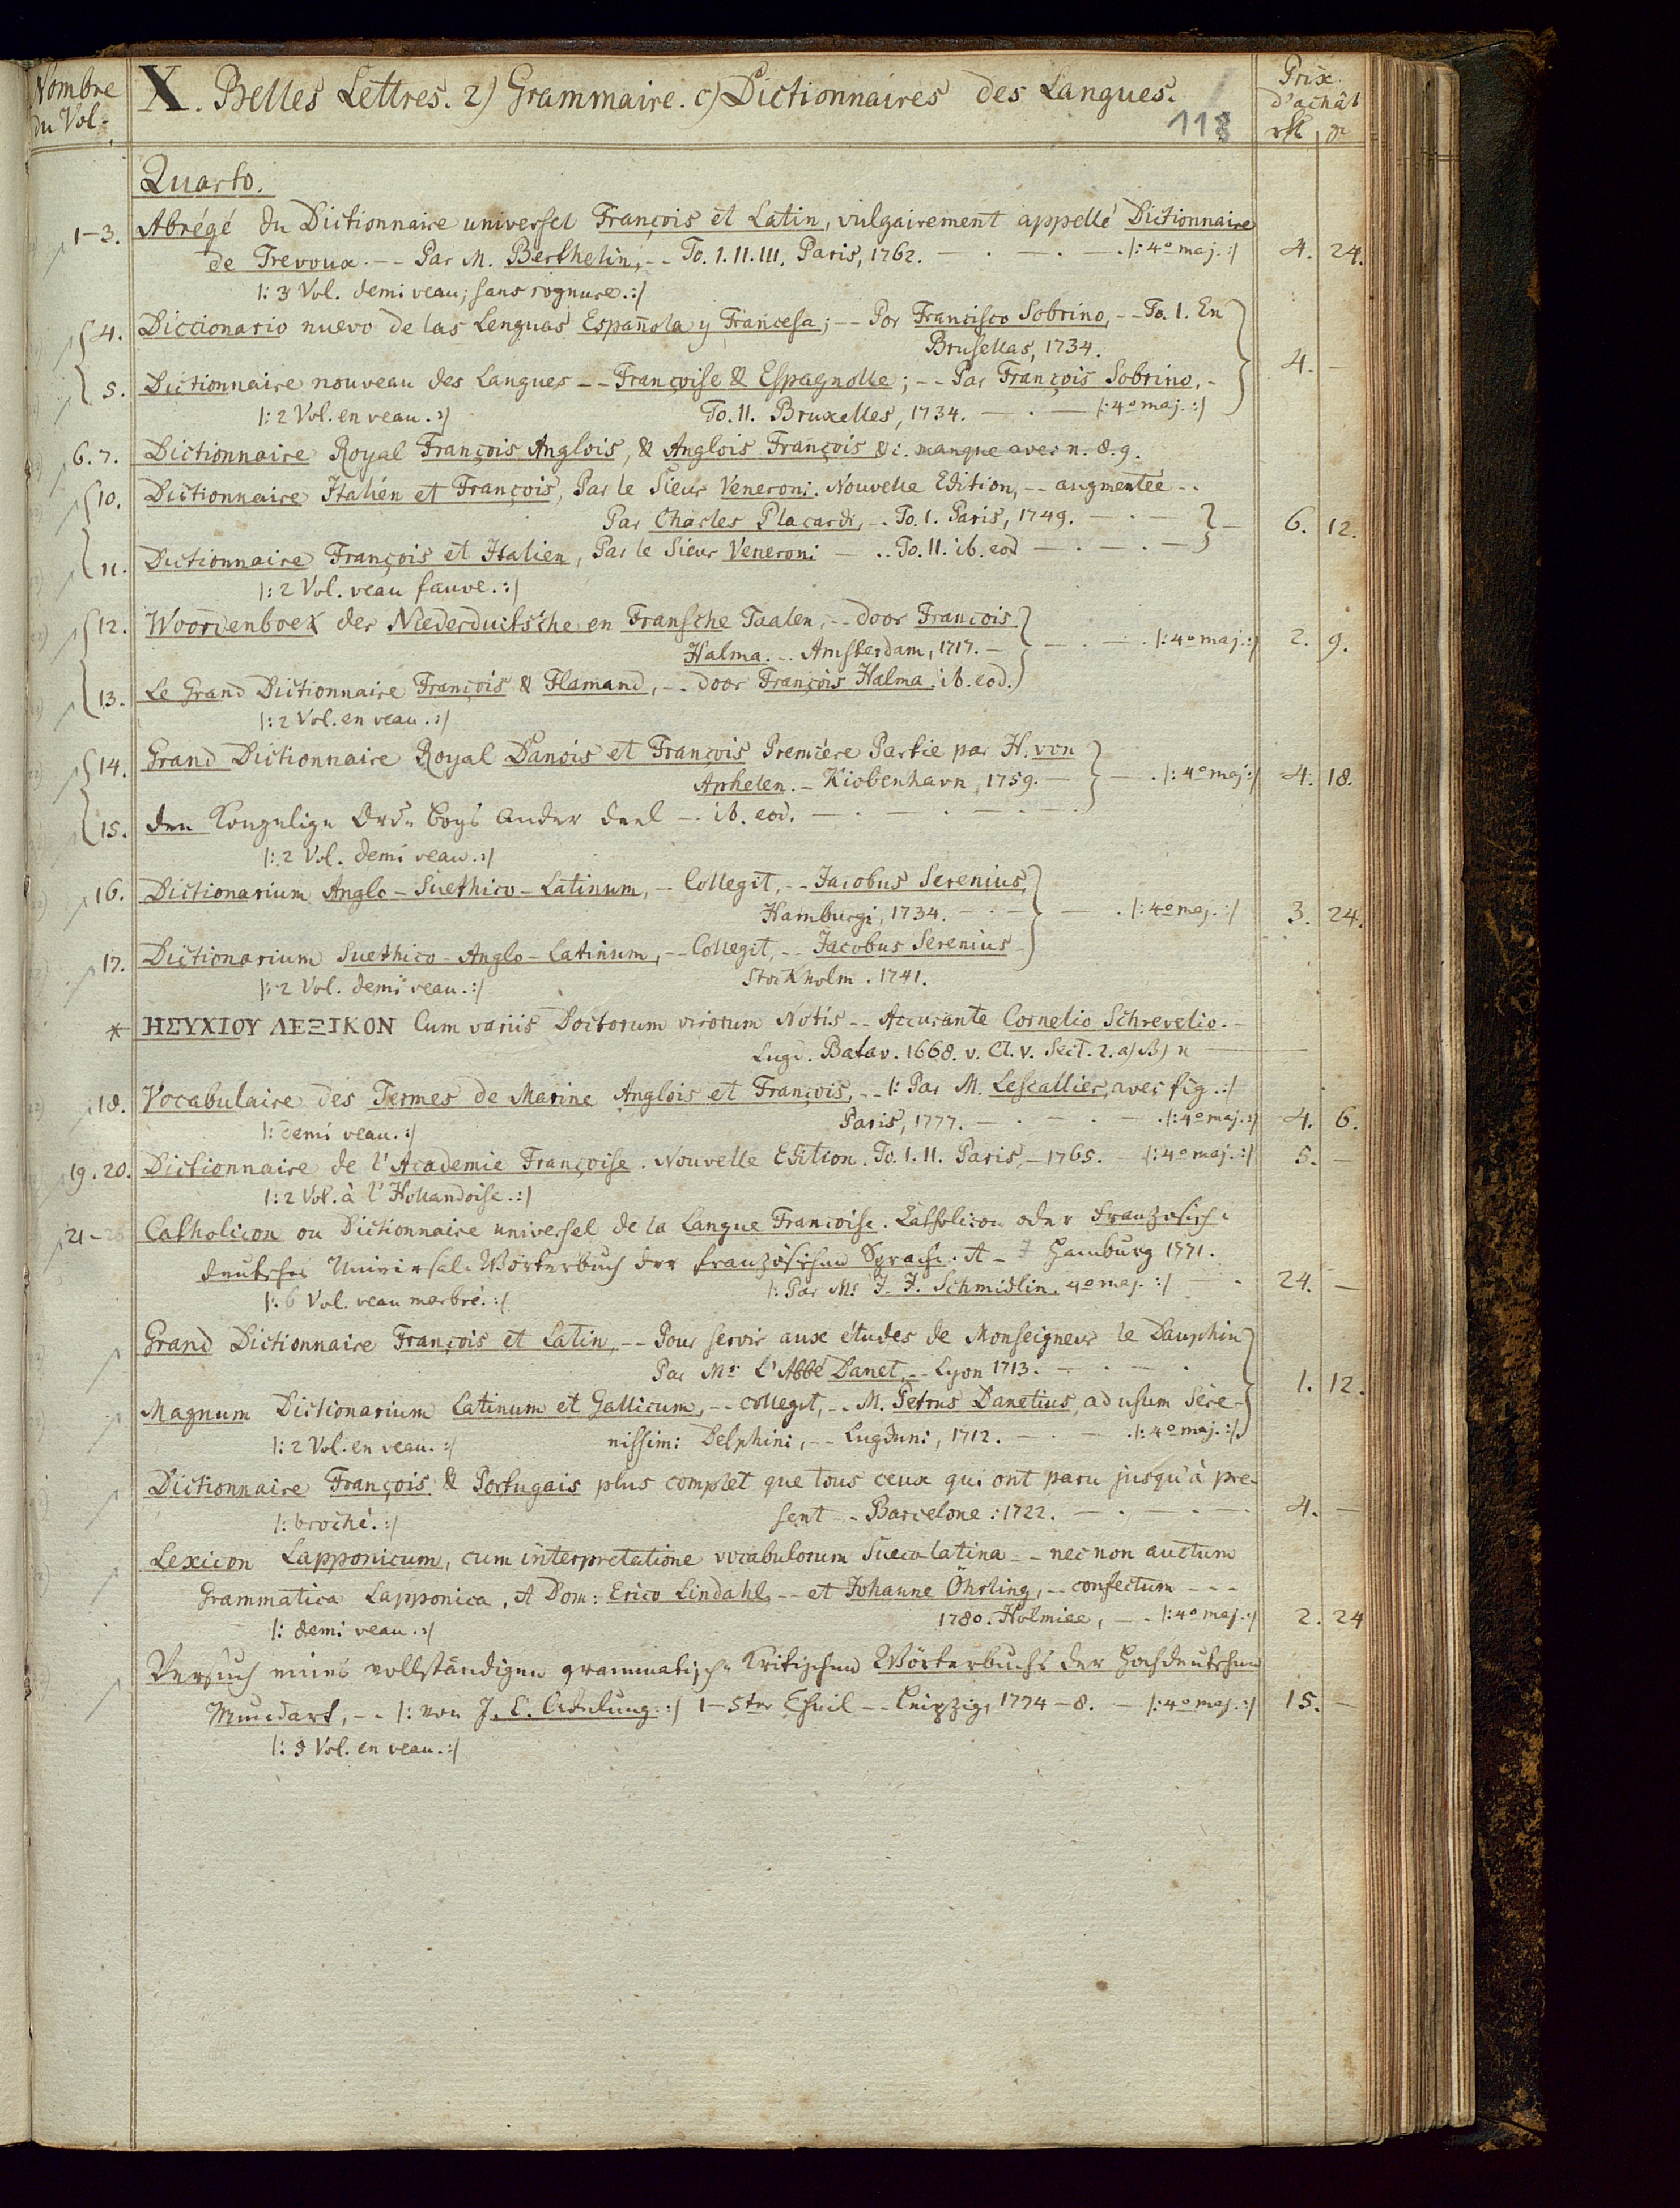 Nombre du Vol.
X. Belles Lettres. 2) Grammaire. c) Dictionnaires des Langues.
118
Prix d'achât
Quarto.
1-3. Abrégé du Dictionnaire universel François et Latin, vulgairement appellé Dictionnaire
de Trevoux. -- Par M. Berthelin, -- To. I. II. III. Paris, 1762. — . — . — . |: 4o maj. :| 4. 24.
|: 3 Vol. demi veau; sans rognure. :|
4. Diccionario nuevo de las Lenguas Española y Francesa; -- Por Francisco Sobrino, -- To. I. En
Brusellas, 1734.
4. —
5. Dictionnaire nouveau des Langues -- Françoise & Espagnolle; -- Par François Sobrino, -
|: 2 Vol. en veau. :| To. II. Bruxelles, 1734. — . — |: 4o maj. :|
6. 7. Dictionnaire Royal François Anglois, & Anglois François &c. manque avec n. 8. 9.
10. Dictionnaire Italién et François, Par le Sieur Veneroni. Nouvelle Edition, -- augmentée --
Par Charles Placardi, -- To. I. Paris, 1749. — . — — 6. 12.
11. Dictionnaire François et Italien, Par le Sieur Veneroni — .. To. II. ib. eod — . — . —
|: 2 Vol. veau fauve. :|
12. Woordenboek der Niederduitsche en Fransche Taalen, -- door François
Halma. -- Amsterdam, 1717. — — . — . |: 4o maj. :| 2. 9.
13. Le Grand Dictionnaire François & Flamand, -- door François Halma. ib. eod.
|: 2 Vol. en veau. :|
14. Grand Dictionnaire Royal Danois et François Premiére Partie par H. von
Aphelen. - Kiobenhavn, 1759. — — . |: 4o maj. :| 4. 18.
15. den Kongelige Ord- Bogs Ander Deel -- ib. eod. — . — . — . —
|: 2 Vol. demi veau. :|
16. Dictionarium Anglo-Suethico-Latinum, -- Collegit, -- Jacobus Serenius,
Hamburgi, 1734. — . — — . |: 4o maj. :| 3. 24.
17. Dictionarium Suethico-Anglo-Latinum, -- Collegit, -- Jacobus Serenius -
|: 2 Vol. demi veau. :| Stockholm. 1741.
* ΗΣΥΧΙΟΥ ΛΕΞΙΚΟΝ Cum variis Doctorum virorum Notis -- Accurante Cornelio Schrevelio. -
Lugd. Batav. 1668. v. Cl. V. Sect. 2. a)
18. Vocabulaire des Termes de Marine Anglois et François, -- |: Par M. Lescallier, avec fig. :|
|: demi veau. :| Paris, 1777. — . . — . |: 4o maj. :| 4. 6.
19. 20. Dictionnaire de l'Academie Françoise. Nouvelle Edition. To. I. II. Paris, - 1765. — |: 4o maj. :| 5. —
|: 2 Vol. à l'Hollandoise. :|
21-26 Catholicon ou Dictionnaire universel de la Langue Francoise. Catholicon oder französisch-
deutsches Universal-Wörterbuch der französischen Sprache. A - I Hamburg 1771.
|: 6 Vol. veau marbré. :| |: Par Mr. J. J. Schmidlin. 4o maj. :| — . 24. —
Grand Dictionnaire François et Latin, -- Pour servir aux études de Monseigneur le Dauphin
Par Mr. L'Abbé Danet, -- Lyon 1713. — . — .
1. 12.
Magnum Dictionarium Latinum et Gallicum, -- collegit, -- M. Petrus Danetius, ad usum Sere-
|: 2 Vol. en veau. :| nissimi Delphini, -- Lugduni, 1712. — . — . |: 4o maj. :|
Dictionnaire François & Portugais plus complet que tous ceux qui ont paru jusqu'à pre-
|: broché. :| sent -- Barcelone : 1722. — . — . — . 4. —
Lexicon Lapponicum, cum interpretatione vocabulorum Sueco latina -- nec non auctum
Grammatica Lapponica, A Dom: Erico Lindahl, -- et Johanne Öhrling, -- confectum ---
|: demi veau. :| 1780. Holmiae, — . |: 4o maj. :| 2. 24
Versuch eines vollständigen grammatisch-kritischen Wörterbuchs der Hochdeutschen
Mundart, -- |: von J. C. Adelung. :| 1-5ter Theil -- Leipzig, 1774-8. — |: 4o maj. :| 15. —
|: 5 Vol. en veau. :|